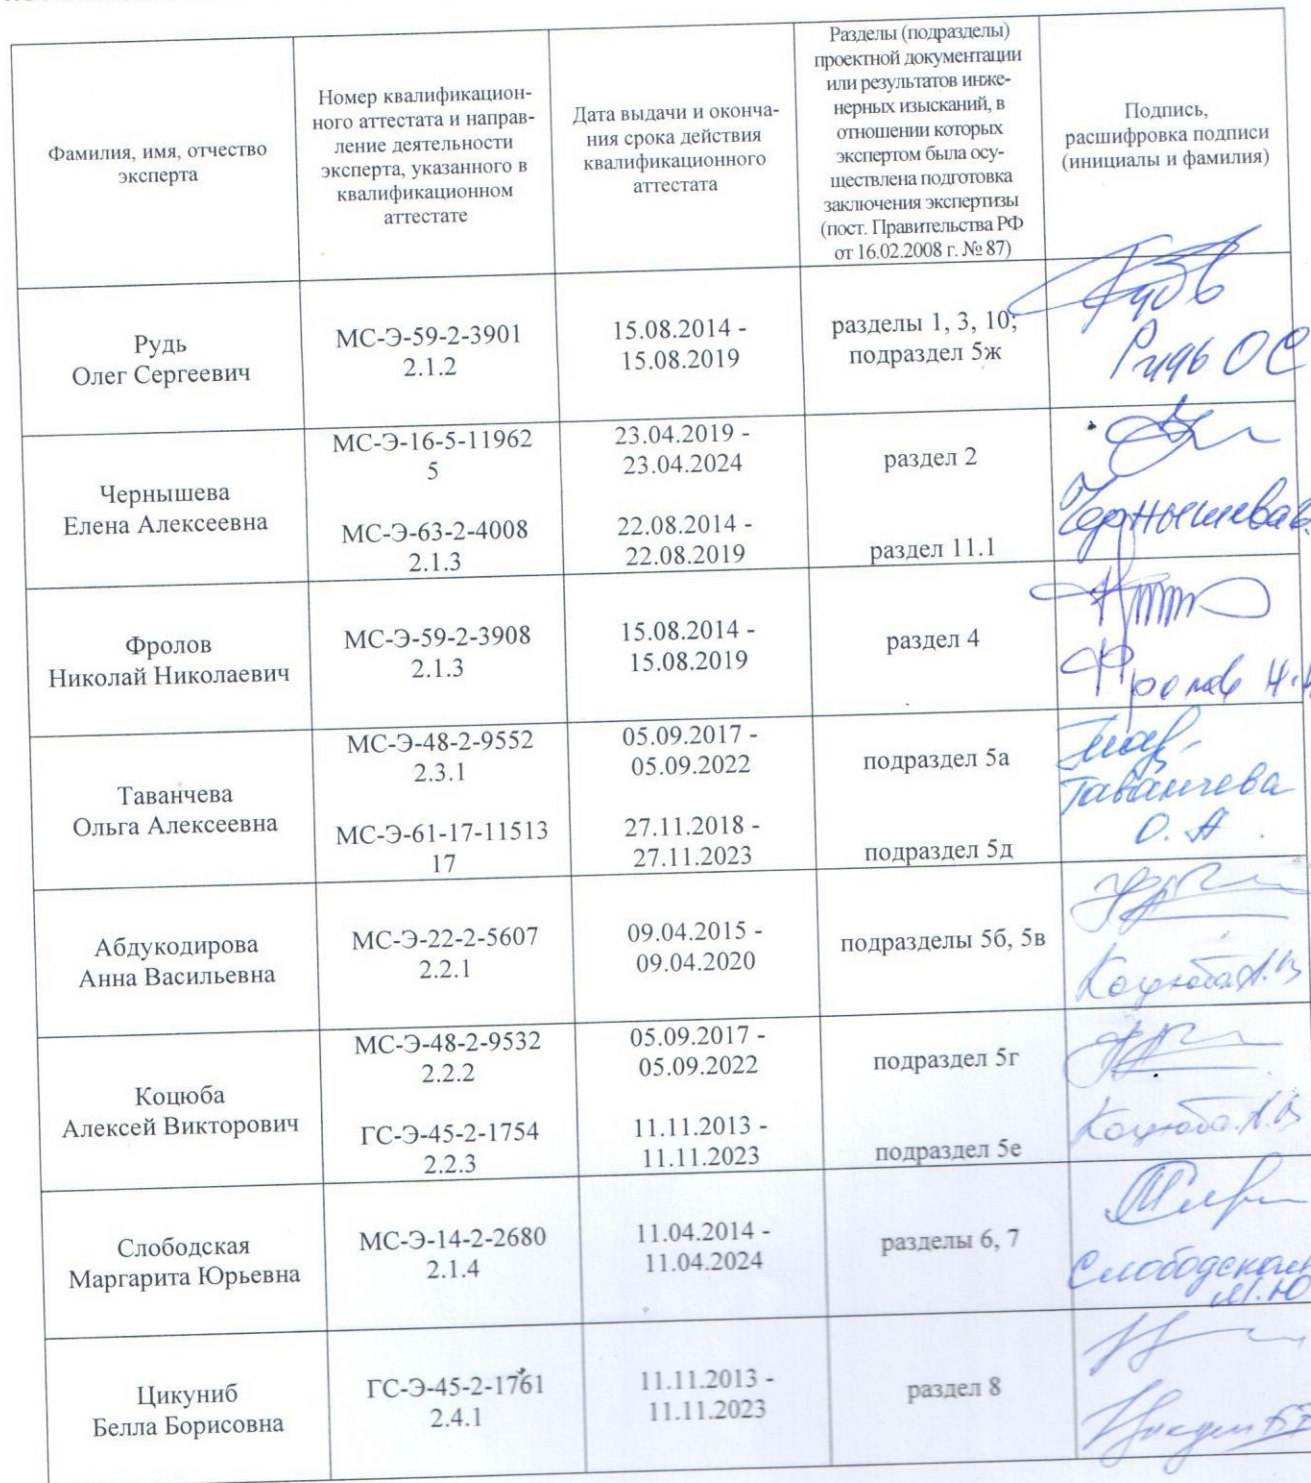 Фамилия, имя, отчество
эксперта
Номер квалификацион-
ного аттестата и направ-
ление деятельности
эксперта, указанного в
квалификационном
аттестате
Дата выдачи и оконча-
ния срока действия
квалификационного
аттестата
Разделы (подразделы)
проектной документации
или результатов инже-
нерных изысканий, в
отношении которых
экспертом была осу-
ществлена подготовка
заключения экспертизы
(пост. Правительства РФ
от 16.02.2008 г. № 87)
Подпись,
расшифровка подписи
(инициалы и фамилия)
Рудь
Олег Сергеевич
МС-Э-59-2-3901
2.1.2
15.08.2014 -
15.08.2019
разделы 1, 3, 10;
подраздел 5ж
Рудь ОС
Чернышева
Елена Алексеевна
МС-Э-16-5-11962
5
23.04.2019 -
23.04.2024
раздел 2
МС-Э-63-2-4008
2.1.3
22.08.2014 -
22.08.2019
раздел 11.1
Чернышева
Фролов
Николай Николаевич
МС-Э-59-2-3908
2.1.3
15.08.2014 -
15.08.2019
раздел 4
Фролов Н.
Таванчева
Ольга Алексеевна
МС-Э-48-2-9552
2.3.1
05.09.2017 -
05.09.2022
подраздел 5а
МС-Э-61-17-11513
17
27.11.2018 -
27.11.2023
подраздел 5д
Таванчева
О. А.
Абдукодирова
Анна Васильевна
МС-Э-22-2-5607
2.2.1
09.04.2015 -
09.04.2020
подразделы 5б, 5в
Коцюба А.В
Коцюба
Алексей Викторович
МС-Э-48-2-9532
2.2.2
05.09.2017 -
05.09.2022
подраздел 5г
ГС-Э-45-2-1754
2.2.3
11.11.2013 -
11.11.2023
подраздел 5е
Коцюба А.В
Слободская
Маргарита Юрьевна
МС-Э-14-2-2680
2.1.4
11.04.2014 -
11.04.2024
разделы 6, 7
Слободская
М.Ю
Цикуниб
Белла Борисовна
ГС-Э-45-2-1761
2.4.1
11.11.2013 -
11.11.2023
раздел 8